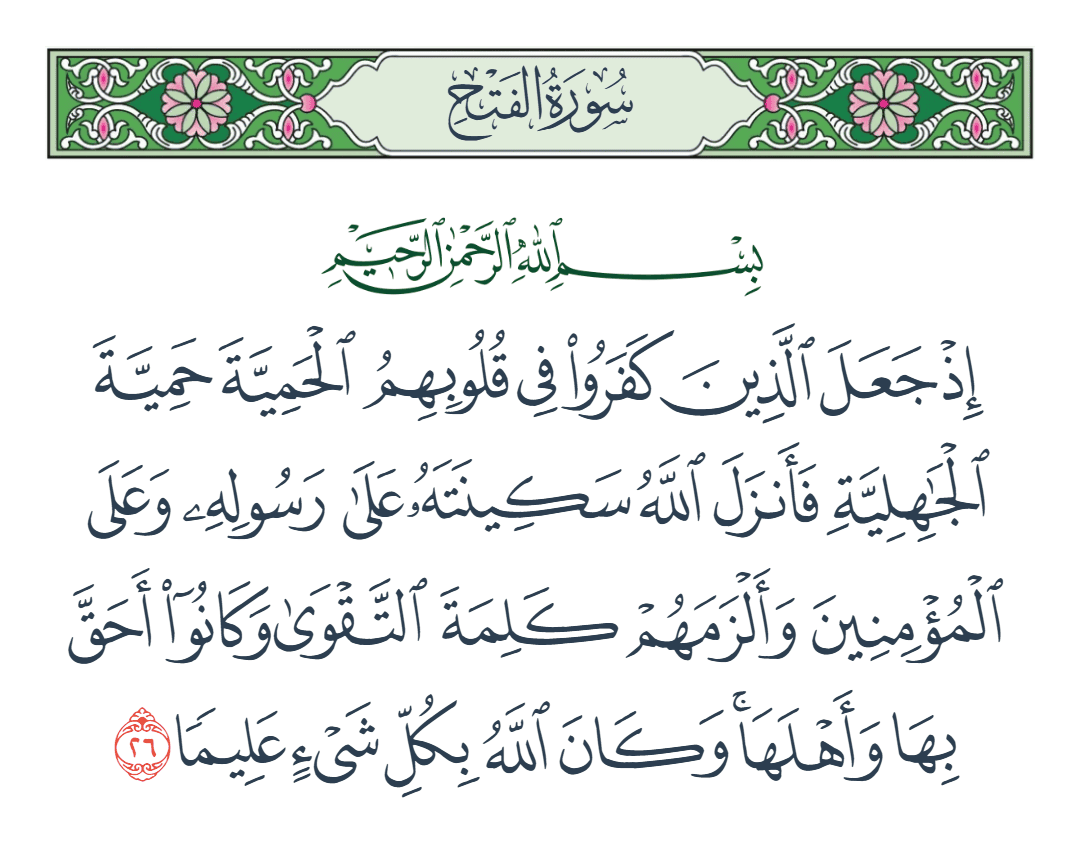 سُورَةُ الفَتْحِ
بِسْمِ ٱللَّهِ ٱلرَّحْمَٰنِ ٱلرَّحِيمِ
إِذْ جَعَلَ ٱلَّذِينَ كَفَرُوا۟ فِى قُلُوبِهِمُ ٱلْحَمِيَّةَ حَمِيَّةَ
ٱلْجَٰهِلِيَّةِ فَأَنزَلَ ٱللَّهُ سَكِينَتَهُۥ عَلَىٰ رَسُولِهِۦ وَعَلَى
ٱلْمُؤْمِنِينَ وَأَلْزَمَهُمْ كَلِمَةَ ٱلتَّقْوَىٰ وَكَانُوٓا۟ أَحَقَّ
بِهَا وَأَهْلَهَا ۚ وَكَانَ ٱللَّهُ بِكُلِّ شَىْءٍ عَلِيمًا ٢٦